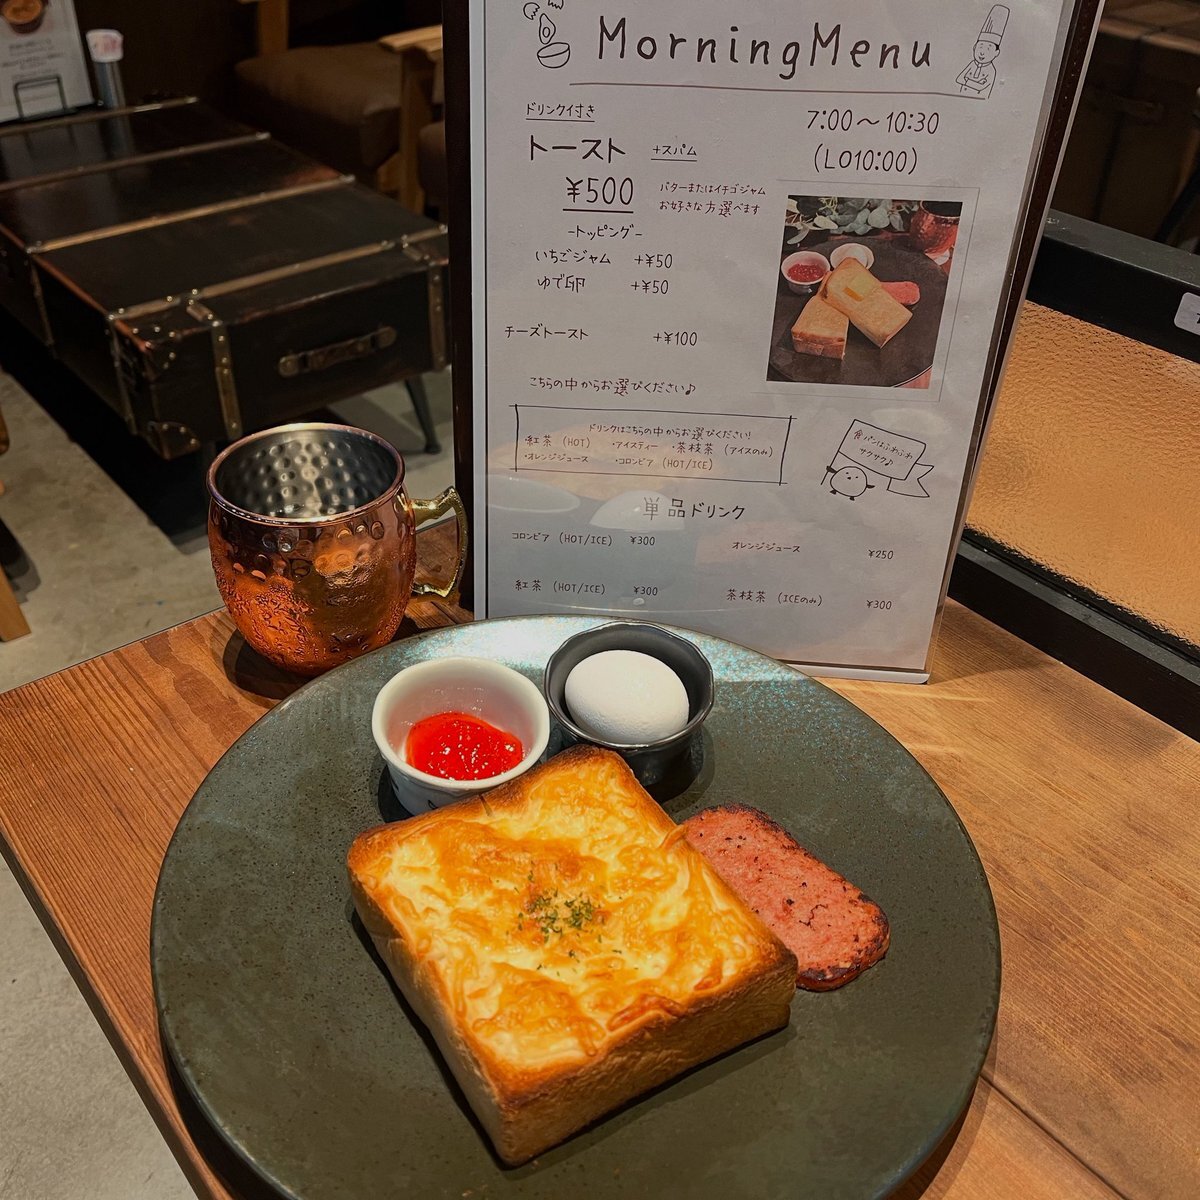 MorningMenu
ドリンク付き
7:00〜10:30
(LO10:00)
トースト +スパム
¥500
バターまたはイチゴジャム
お好きな方選べます
-トッピング-
いちごジャム +¥50
ゆで卵 +¥50
チーズトースト +¥100
こちらの中からお選びください♪
ドリンクはこちらの中からお選び下さい!
紅茶 (HOT) ・アイスティー ・茶枝茶 (アイスのみ)
・オレンジジュース ・コロンビア (HOT/ICE)
食パンはふわふわ
サクサク♪
単品ドリンク
コロンビア (HOT/ICE) ¥300 オレンジジュース ¥250
紅茶 (HOT/ICE) ¥300 茶枝茶 (ICEのみ) ¥300